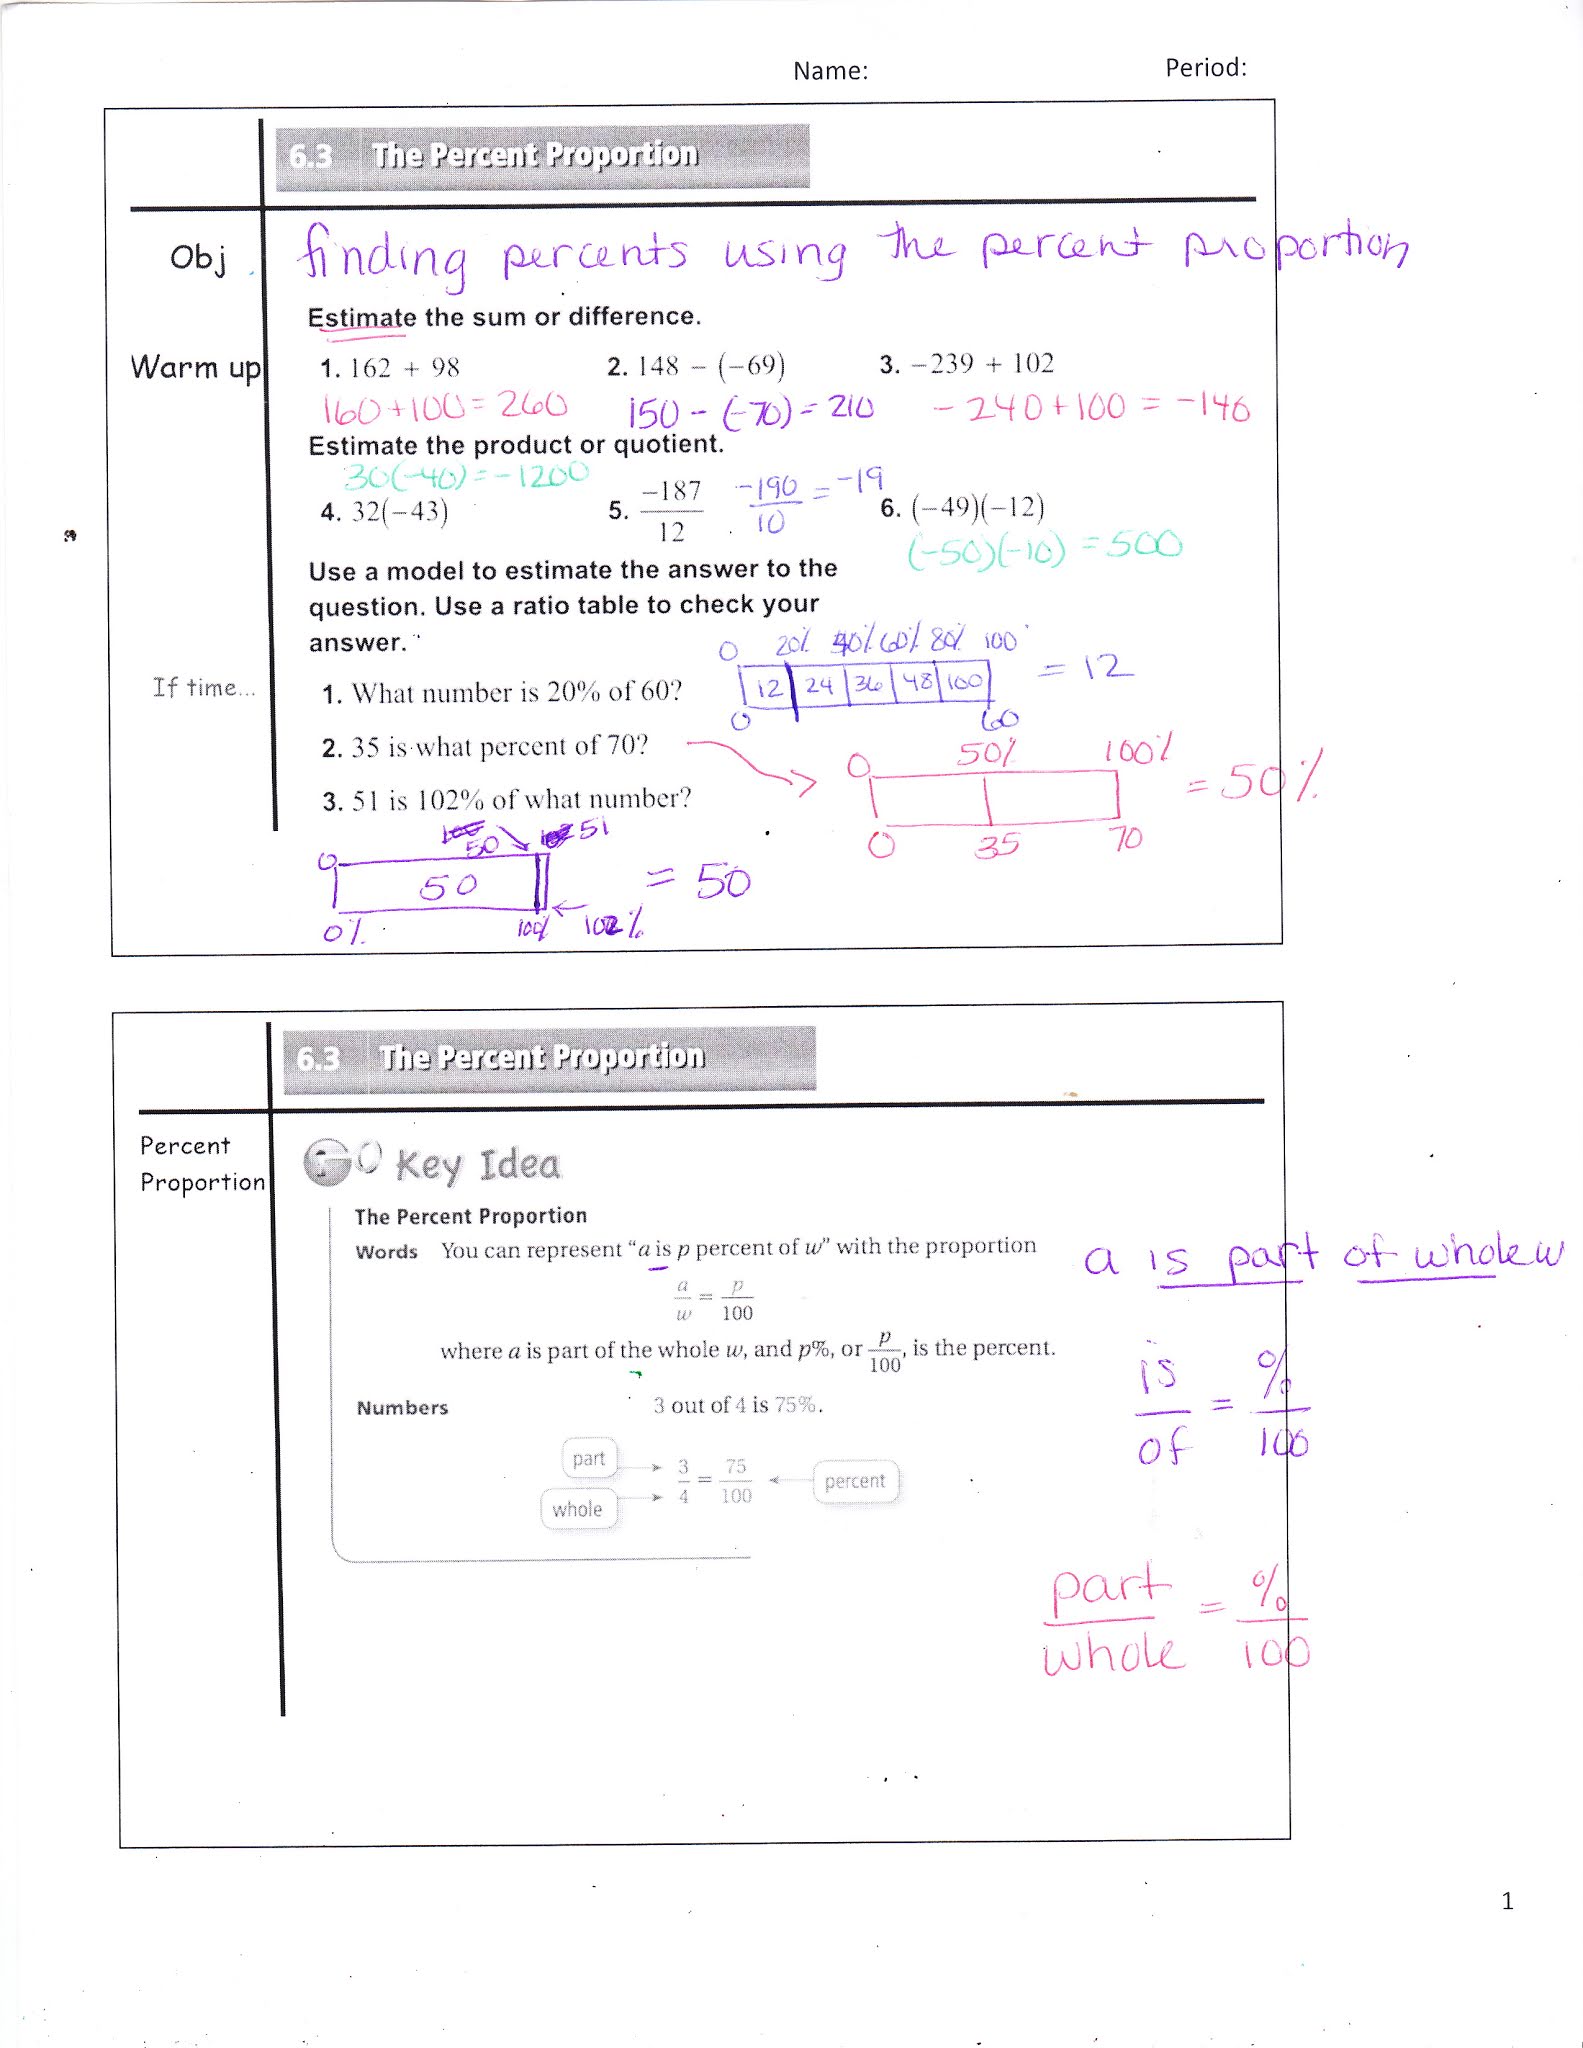 Name: Period:
6.3 The Percent Proportion
Obj finding percents using the percent proportion
Estimate the sum or difference.
Warm up 1. 162 + 98 2. 148 − (−69) 3. −239 + 102
160+100=260 150-(-70)=210 -240+100=-140
Estimate the product or quotient.
30(-40)=-1200
4. 32(−43) 5. −187/12 -190/10 = -19 6. (−49)(−12)
(-50)(-10)=500
Use a model to estimate the answer to the
question. Use a ratio table to check your
answer.
0 20% 40% 60% 80% 100
If time... 1. What number is 20% of 60? 12 24 36 48 100 = 12
0 60
2. 35 is what percent of 70? 0 50% 100%
= 50%
3. 51 is 102% of what number?
0 35 70
50 51
0 50 = 50
0% 100% 102%
6.3 The Percent Proportion
Percent
Proportion
Key Idea
The Percent Proportion
Words You can represent “a is p percent of w” with the proportion
a is part of whole w
a/w = p/100
where a is part of the whole w, and p%, or p/100, is the percent.
is/of = %/100
Numbers 3 out of 4 is 75%.
part
3/4 = 75/100 percent
whole
part/whole = %/100
1